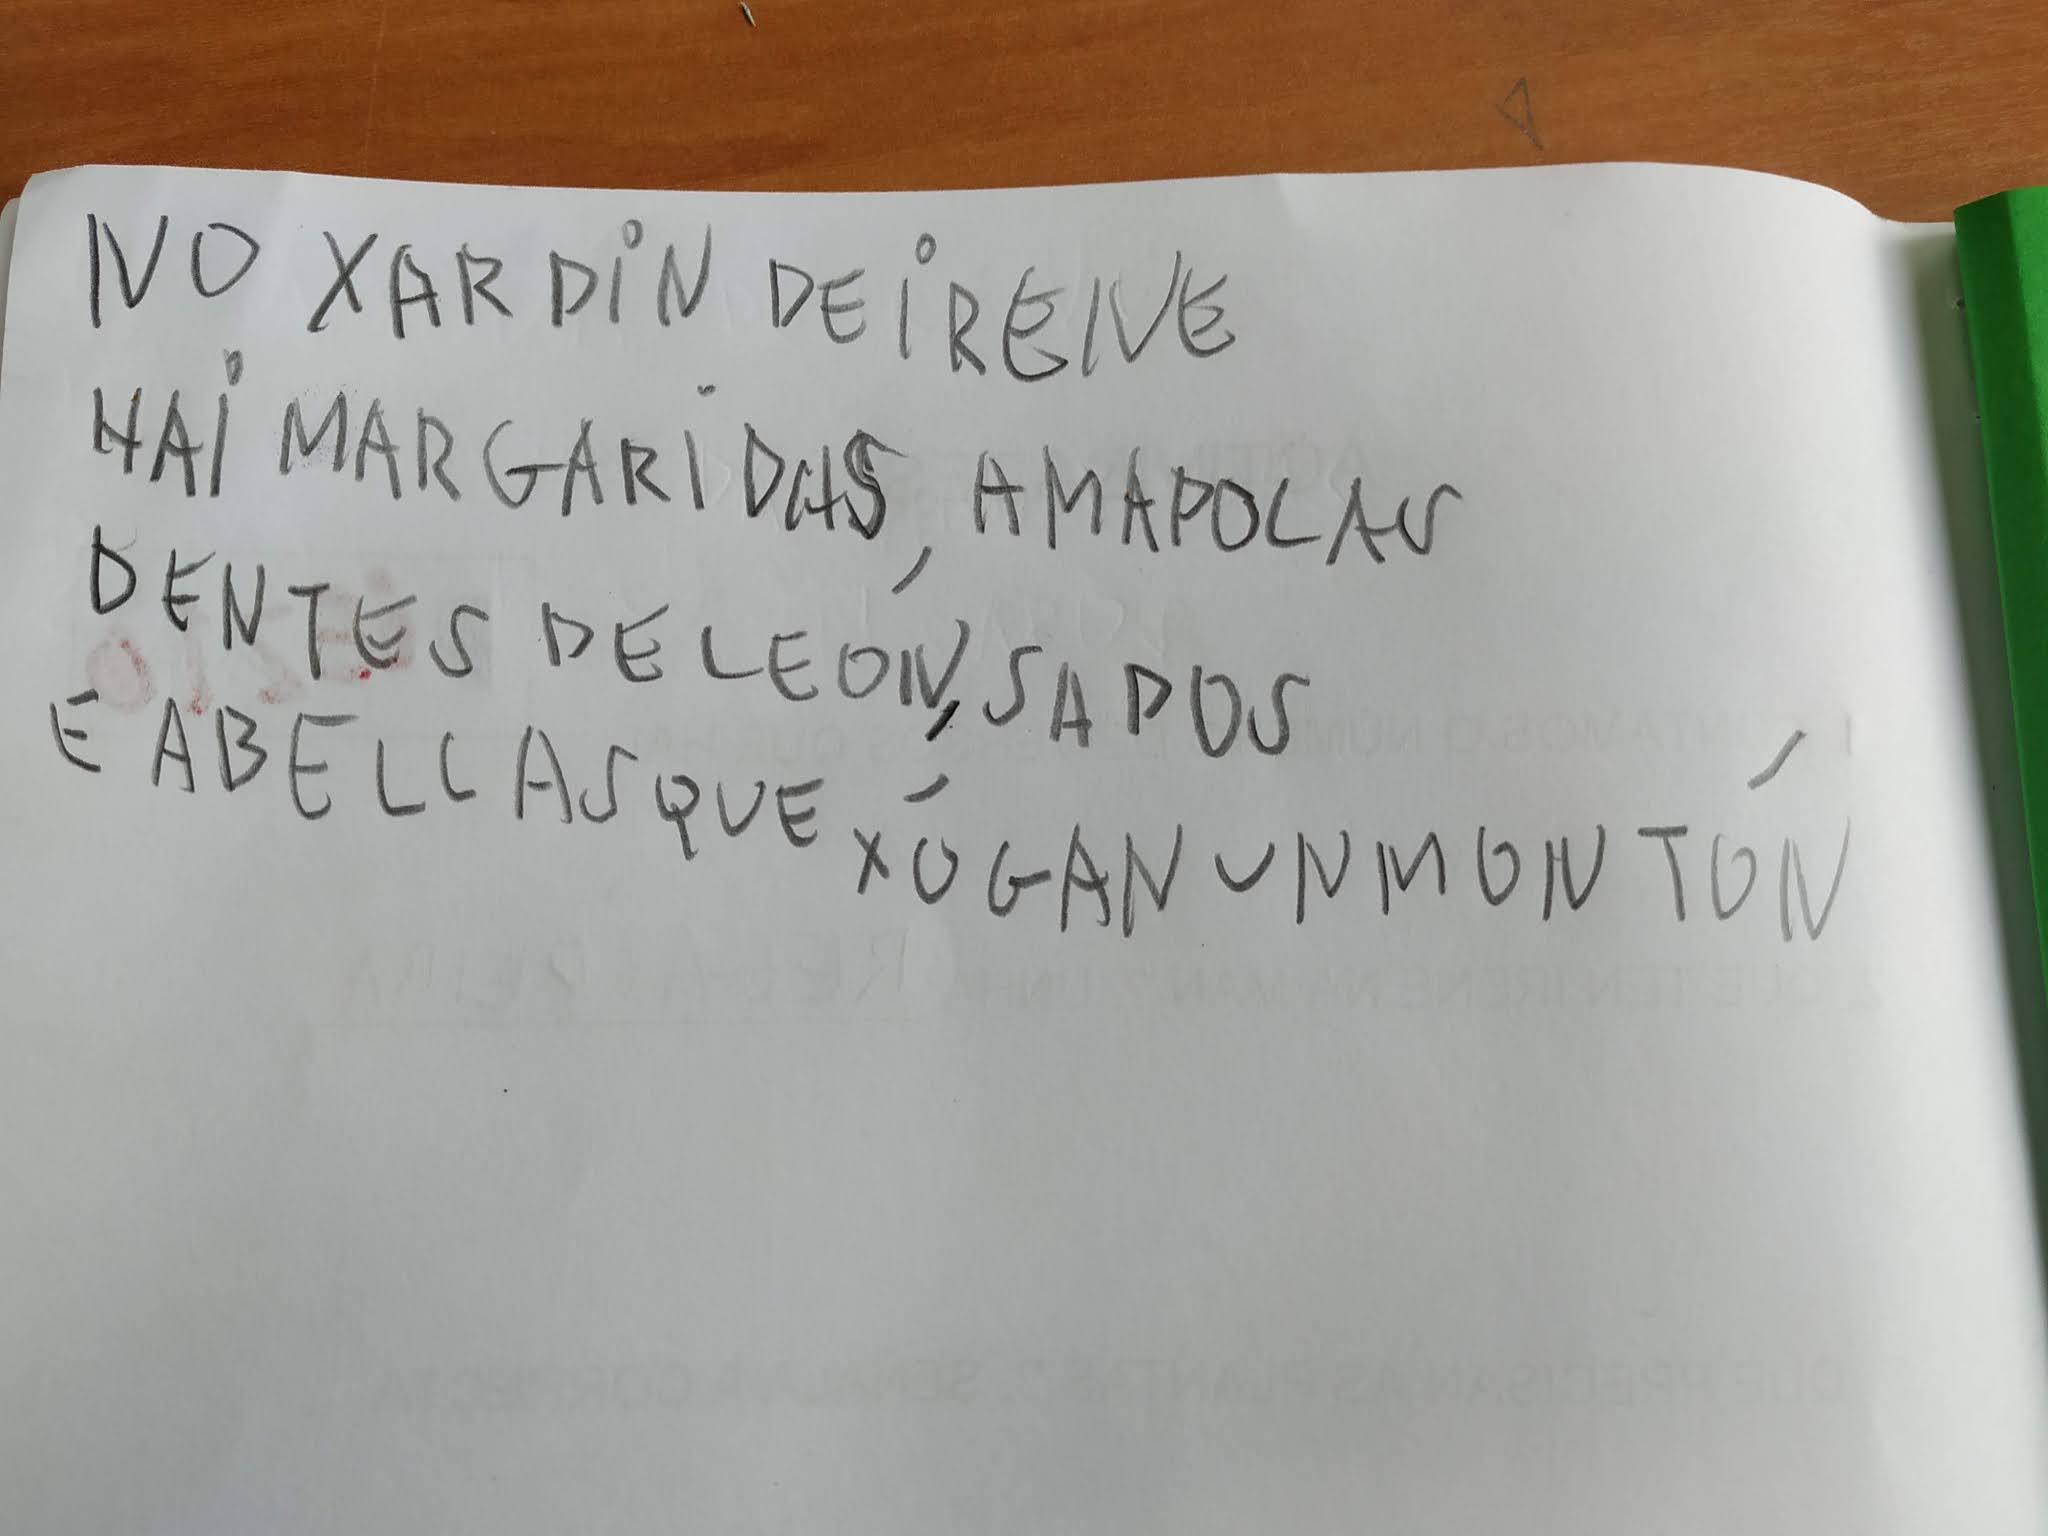 NO XARDiN DE iRENE
HAi MARGARiDAS, AMAPOLAS
DENTES DE LEÓN, SAPOS
E ABELLAS QUE XÓGAN UN MONTÓN